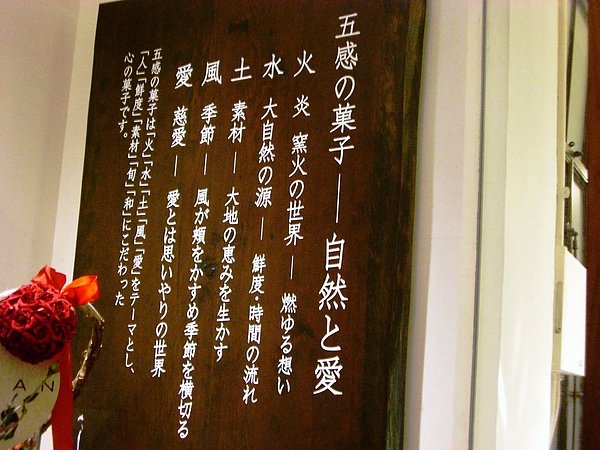 五感の菓子 ― 自然と愛
火 炎 窯火の世界 ― 燃ゆる想い
水 大自然の源 ― 鮮度・時間の流れ
土 素材 ― 大地の恵みを生かす
風 季節 ― 風が頬をかすめ季節を横切る
愛 慈愛 ― 愛とは思いやりの世界
五感の菓子は「火」「水」「土」「風」「愛」をテーマとし、
「人」「鮮度」「素材」「旬」「和」にこだわった
心の菓子です。
AN